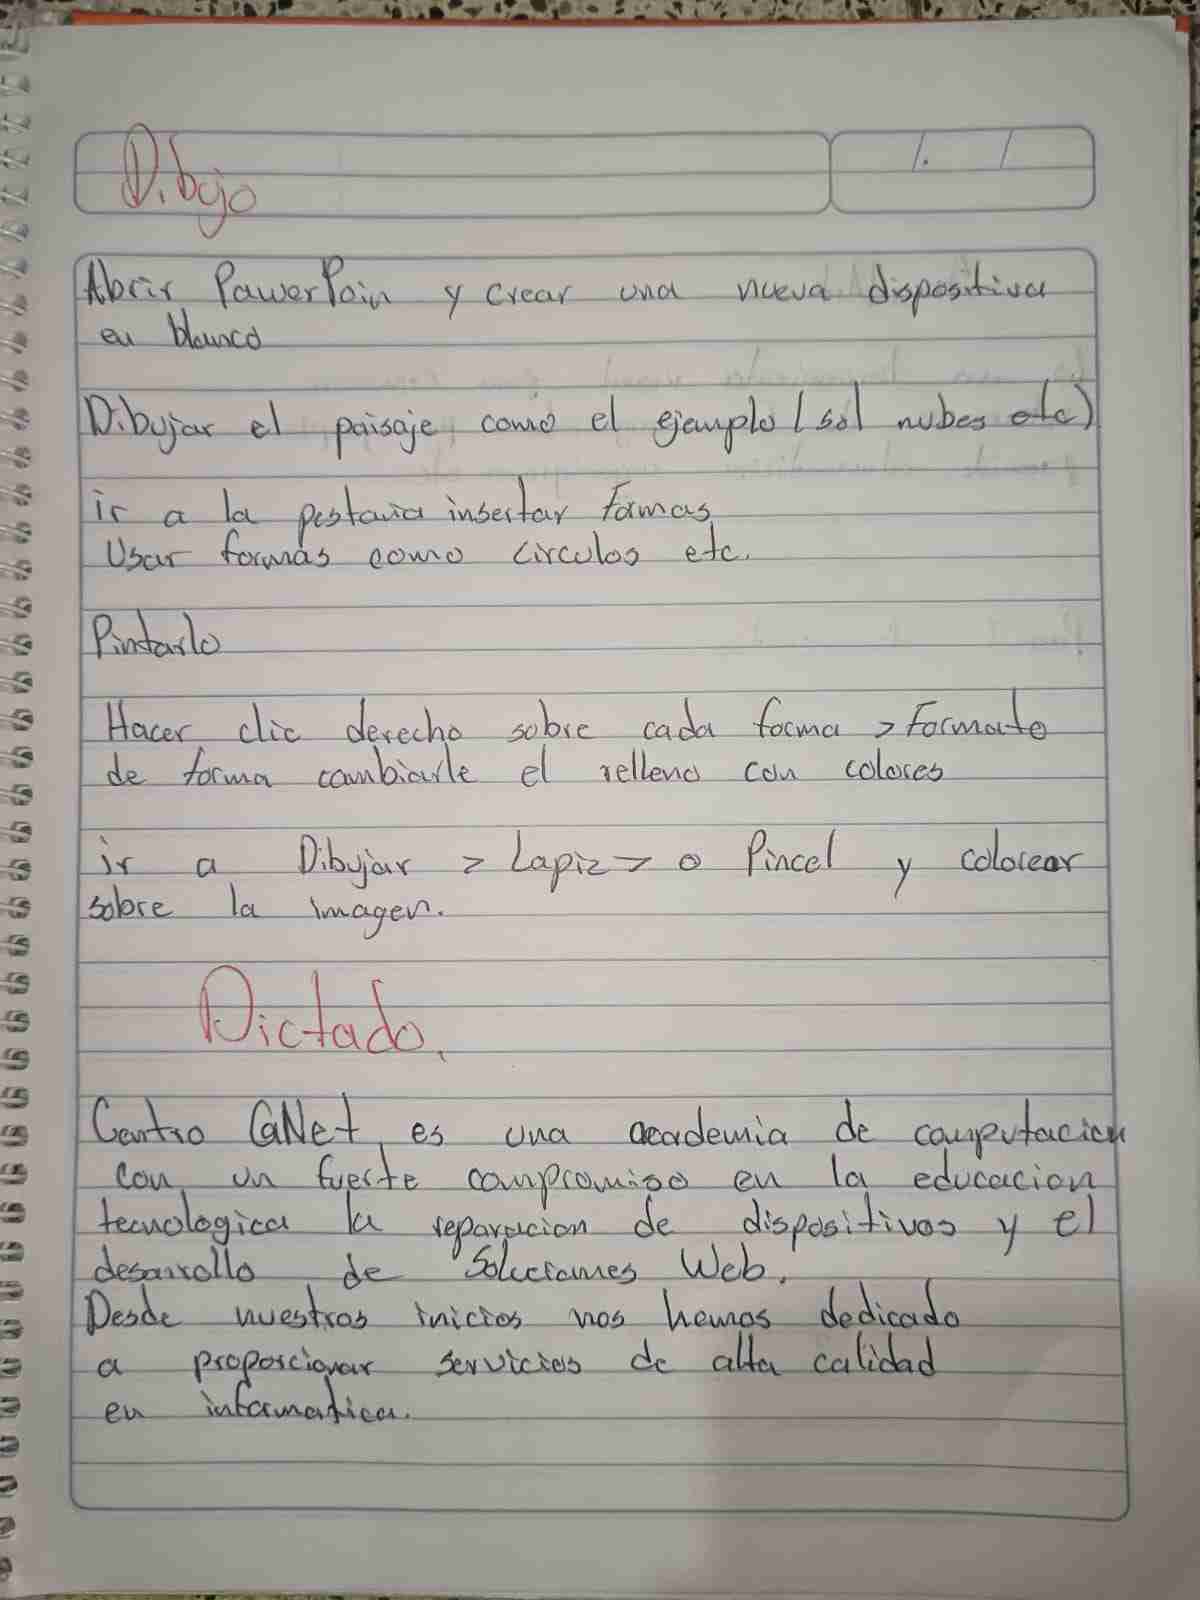 Dibujo
Abrir PawerPoin y crear una nueva dispositiva
en blanco
Dibujar el paisaje como el ejemplo (sol nubes etc)
ir a la pestaña insertar formas
Usar formas como circulos etc.
Pintarlo
Hacer clic derecho sobre cada forma > Formato
de forma cambiarle el relleno con colores
ir a Dibujar > Lapiz > o Pincel y colorear
sobre la imagen.
Dictado.
Centro GNet es una academia de computacion
con un fuerte compromiso en la educacion
tecnologica la reparacion de dispositivos y el
desarrollo de Soluciones Web.
Desde nuestros inicios nos hemos dedicado
a proporcionar servicios de alta calidad
en informatica.